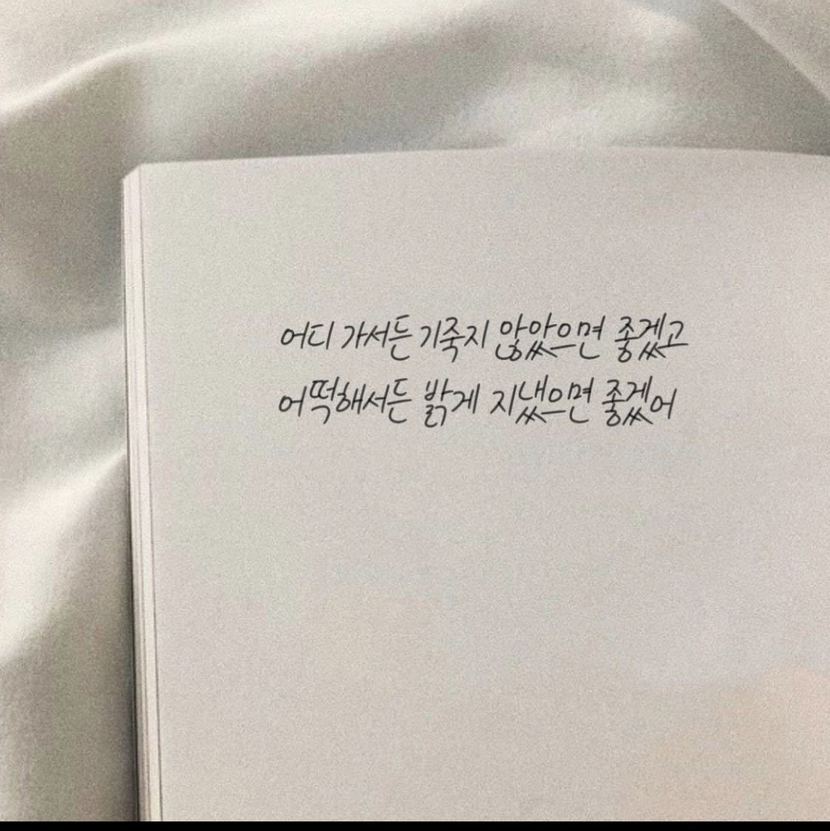 어디 가서든 기죽지 않았으면 좋겠고
어떡해서든 밝게 지냈으면 좋겠어